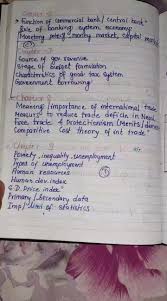 * Function of commercial bank / central bank
Role of banking system, economy
Monetary policy, money market, capital market
Source of gov revenue
Stage of budget formulation
Characteristics of good tax system
Government borrowing
Chapter 8
Meaning / importance of international trade
Measures to reduce trade deficit in Nepal
Free trade & Protectionism (Merits / demerits)
Comparative Cost theory of int trade
Chapter 9
Poverty, inequality, unemployment
Types of unemployment
Human resources
Human dev. index
Price index
Primary / Secondary data
Imp / Limi of statistics